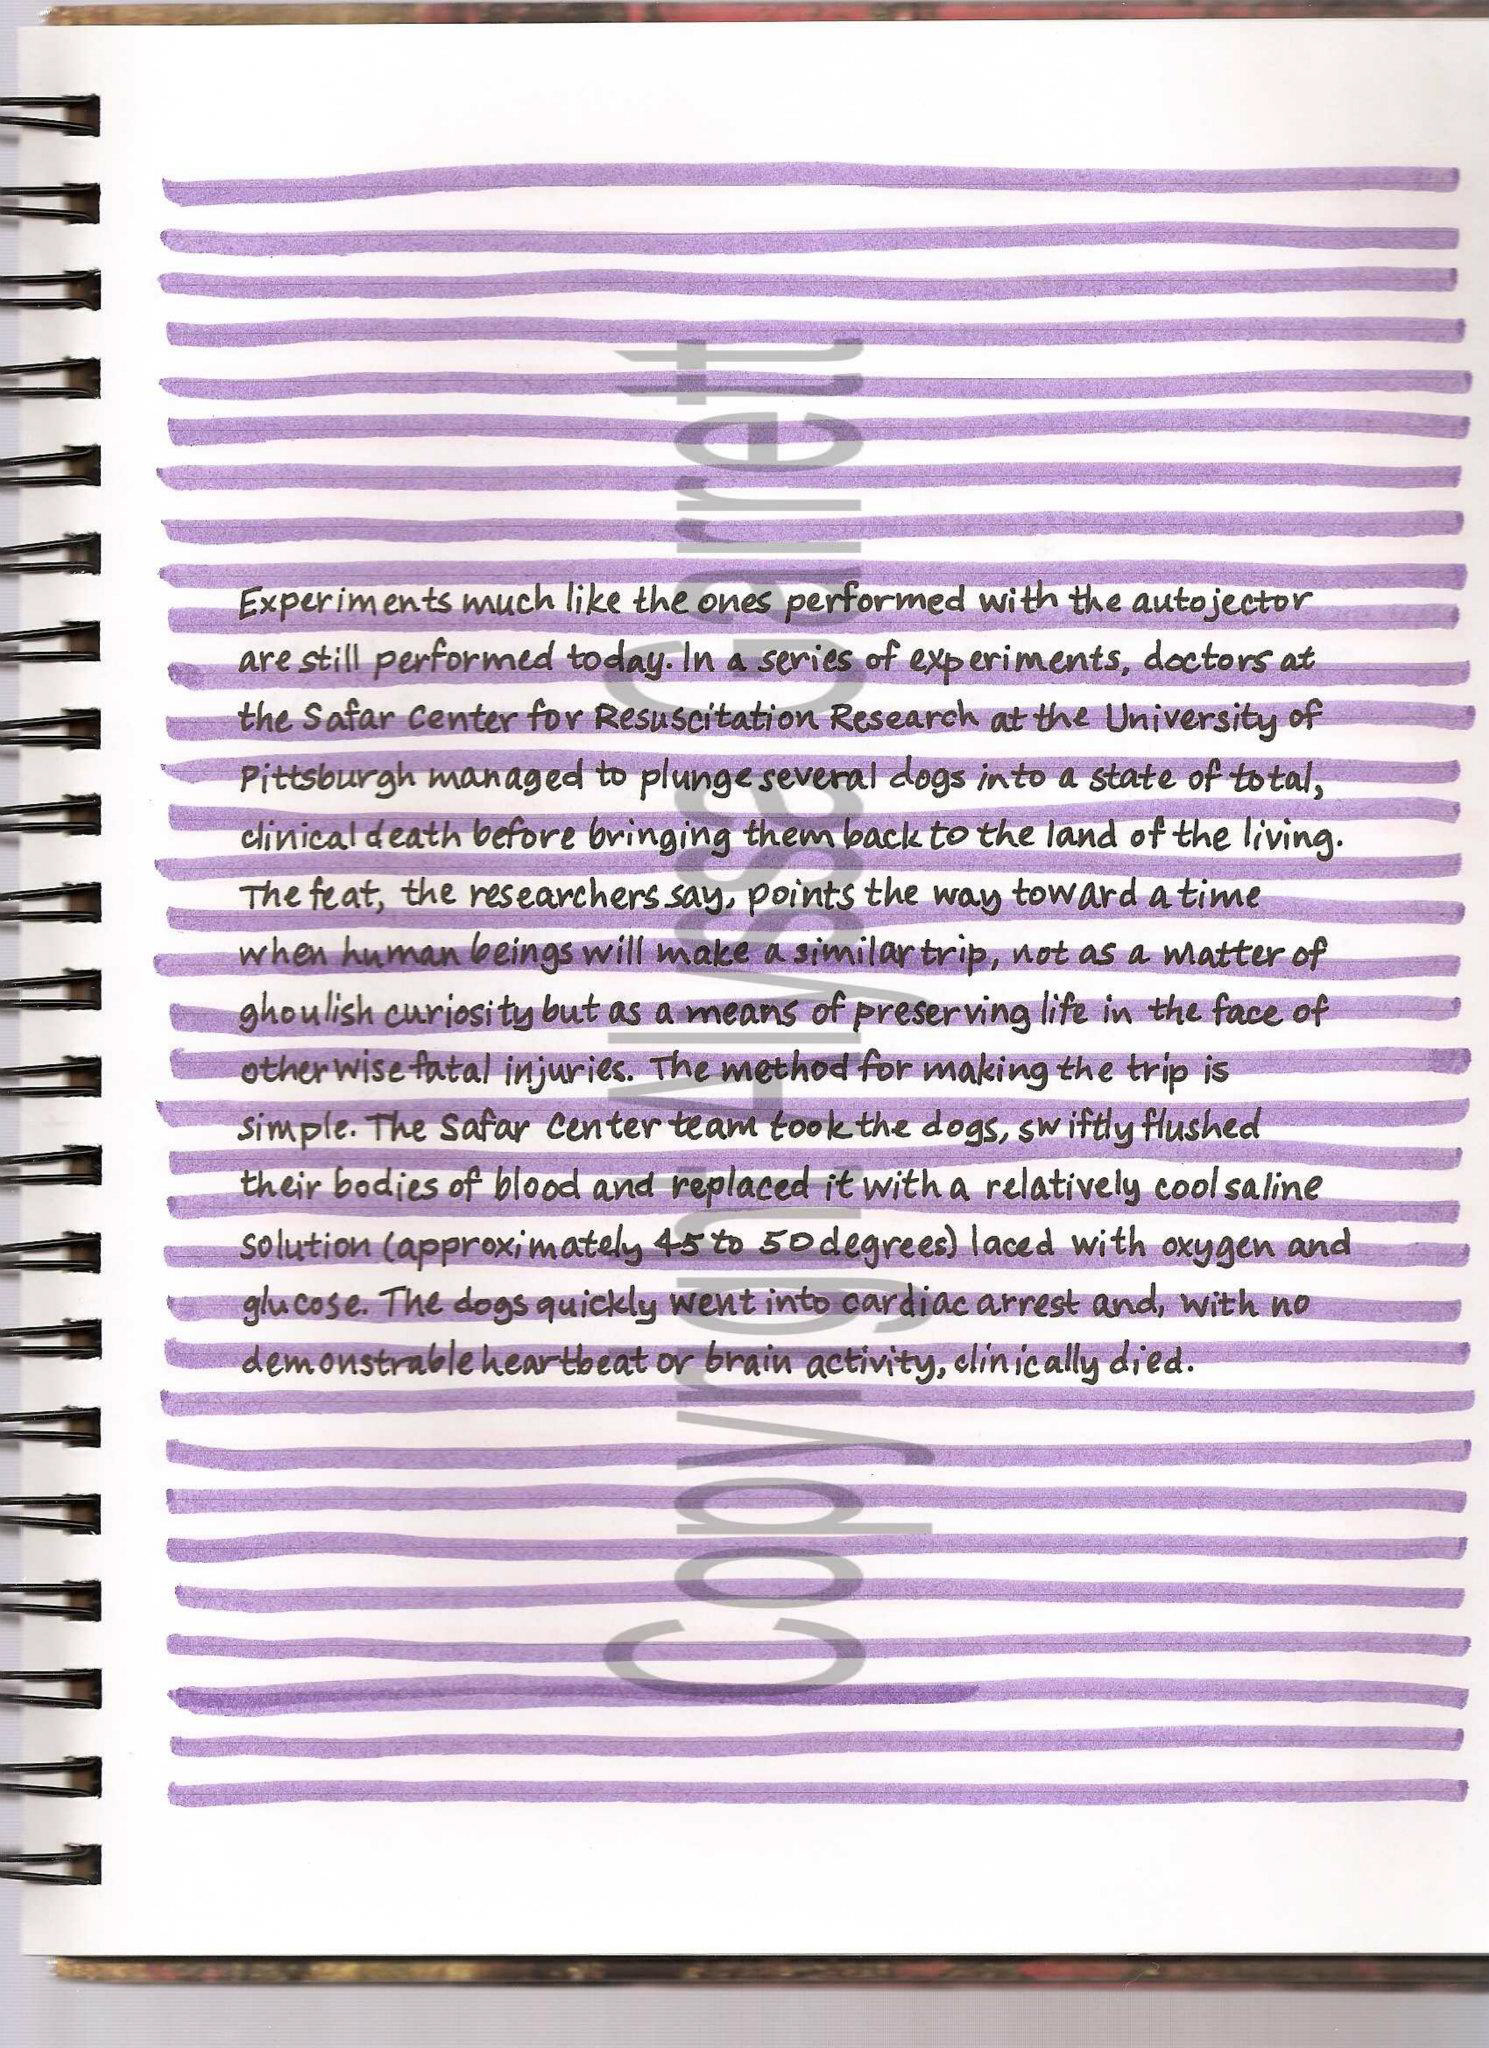 Experiments much like the ones performed with the autojector
are still performed today. In a series of experiments, doctors at
the Safar Center for Resuscitation Research at the University of
Pittsburgh managed to plunge several dogs into a state of total,
clinical death before bringing them back to the land of the living.
The feat, the researchers say, points the way toward a time
when human beings will make a similar trip, not as a matter of
ghoulish curiosity but as a means of preserving life in the face of
otherwise fatal injuries. The method for making the trip is
simple. The Safar Center team took the dogs, swiftly flushed
their bodies of blood and replaced it with a relatively cool saline
solution (approximately 45 to 50 degrees) laced with oxygen and
glucose. The dogs quickly went into cardiac arrest and, with no
demonstrable heartbeat or brain activity, clinically died.
Copyright Alyssa Garret